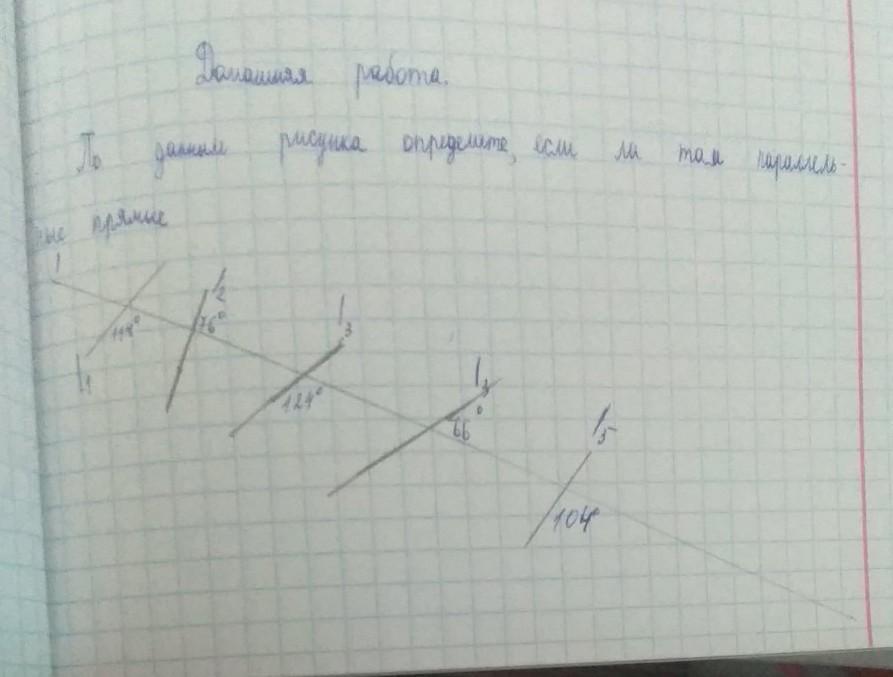 Домашняя работа.
По данным рисунка определите, если ла там параллель-
ные прямые
l
l2
l3
118°
76°
l1
124°
l4
66°
l5
104°